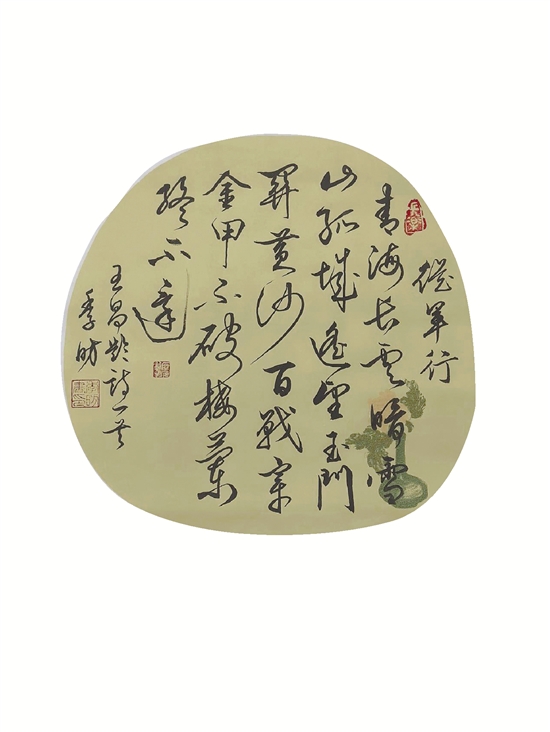 從軍行
青海長雲暗雪
山孤城遙望玉門
關黃沙百戰穿
金甲不破樓蘭
終不還
王昌齡詩一首
季昉
長樂